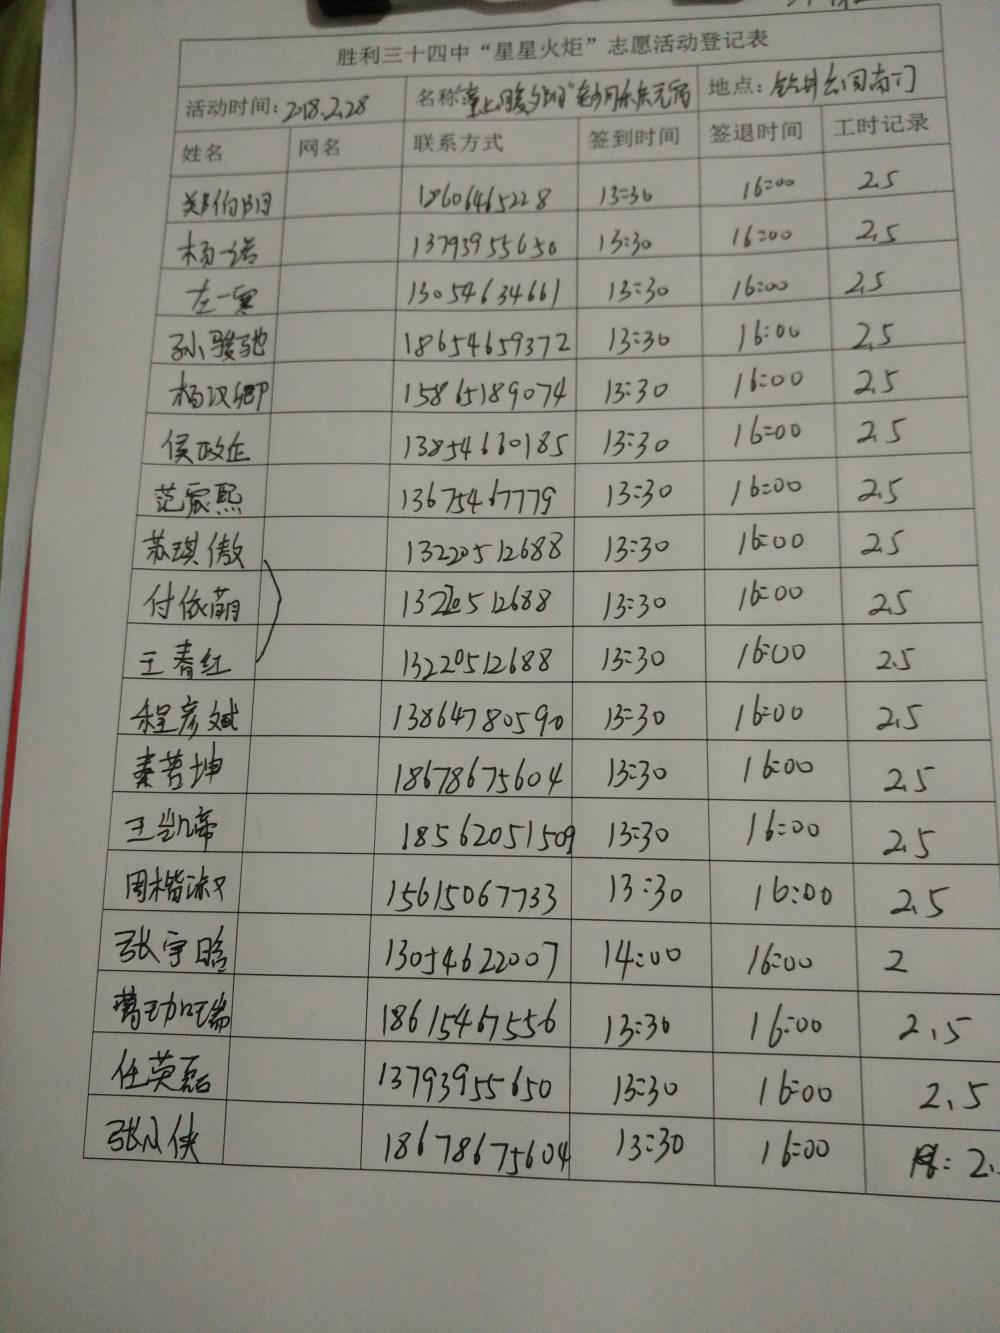 胜利三十四中“星星火炬”志愿活动登记表
活动时间：2018.2.28 名称 地点：钻井公园南门
姓名 网名 联系方式 签到时间 签退时间 工时记录
郑伯阳 18606465228 13:30 16:00 2.5
杨一诺 13793955650 13:30 16:00 2.5
左一 13054634661 13:30 16:00 2.5
孙骏驰 18654659372 13:30 16:00 2.5
杨汉卿 15865189074 13:30 16:00 2.5
侯政 13854630185 13:30 16:00 2.5
范宸熙 13675467779 13:30 16:00 2.5
苏琪傲 13220512688 13:30 16:00 2.5
付依萌 13220512688 13:30 16:00 2.5
王春红 13220512688 13:30 16:00 2.5
程彦斌 13864780590 13:30 16:00 2.5
秦若坤 18678675604 13:30 16:00 2.5
王凯帝 18562051509 13:30 16:00 2.5
周楷淑 15615067733 13:30 16:00 2.5
张宇晗 13054622007 14:00 16:00 2
18615467556 13:30 16:00 2.5
任英磊 13793955650 13:30 16:00 2.5
张 侠 18678675604 13:30 16:00 2.